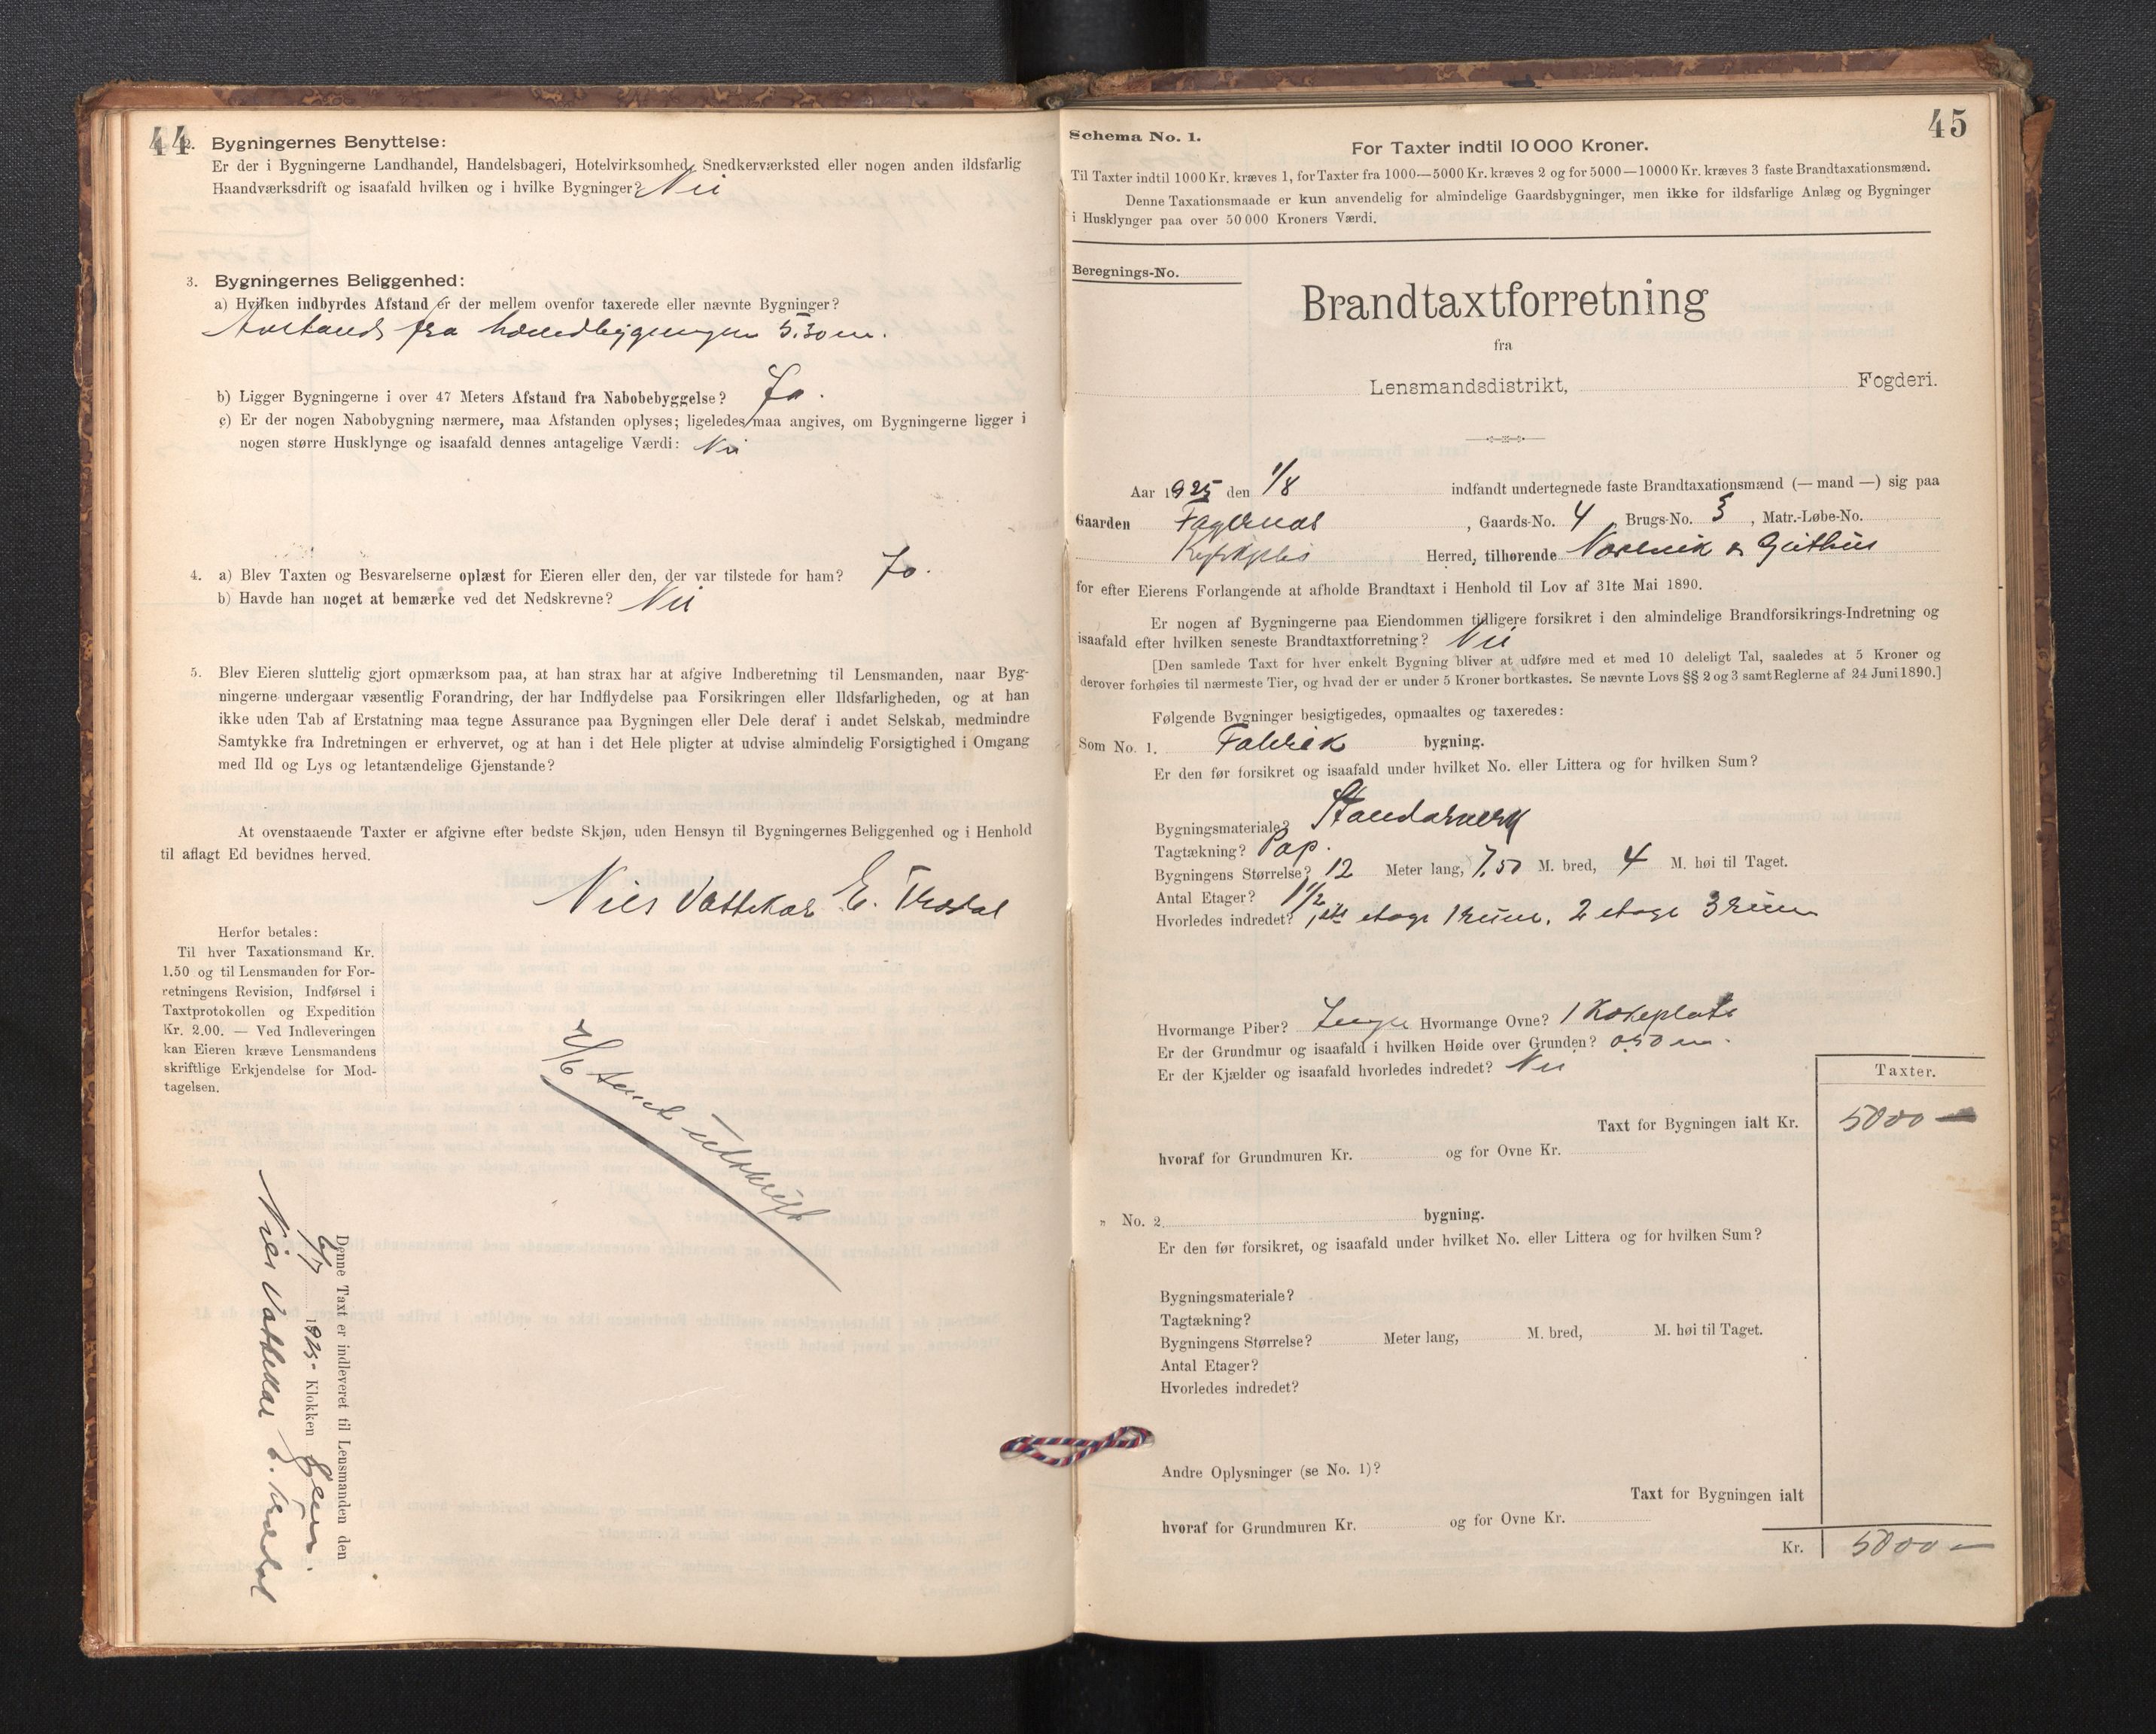 44
2. Bygningernes Benyttelse:
Er der i Bygningerne Landhandel, Handelsbageri, Hotelvirksomhed, Snedkerværksted eller nogen anden ildsfarlig
Haandværksdrift og isaafald hvilken og i hvilke Bygninger? Nei
3. Bygningernes Beliggenhed:
a) Hvilken indbyrdes Afstand er der mellem ovenfor taxerede eller nævnte Bygninger?
fra 5.30 m.
b) Ligger Bygningerne i over 47 Meters Afstand fra Nabobebyggelse? Ja.
c) Er der nogen Nabobygning nærmere, maa Afstanden oplyses; ligeledes maa angives, om Bygningerne ligger i
nogen større Husklynge og isaafald dennes antagelige Værdi: Nei
4. a) Blev Taxten og Besvarelserne oplæst for Eieren eller den, der var tilstede for ham? Ja.
b) Havde han noget at bemærke ved det Nedskrevne? Nei
5. Blev Eieren sluttelig gjort opmærksom paa, at han strax har at afgive Indberetning til Lensmanden, naar Byg-
ningerne undergaar væsentlig Forandring, der har Indflydelse paa Forsikringen eller Ildsfarligheden, og at han
ikke uden Tab af Erstatning maa tegne Assurance paa Bygningen eller Dele deraf i andet Selskab, medmindre
Samtykke fra Indretningen er erhvervet, og at han i det Hele pligter at udvise almindelig Forsigtighed i Omgang
med Ild og Lys og letantændelige Gjenstande?
At ovenstaaende Taxter er afgivne efter bedste Skjøn, uden Hensyn til Bygningernes Beliggenhed og i Henhold
til aflagt Ed bevidnes herved.
Nils Vattekar E. Trædal
Herfor betales:
Til hver Taxationsmand Kr.
1.50 og til Lensmanden for For-
retningens Revision, Indførsel i
Taxtprotokollen og Expedition
Kr. 2.00. — Ved Indleveringen
kan Eieren kræve Lensmandens
skriftlige Erkjendelse for Mod-
tagelsen.
sendt utskrift
Denne Taxt er indleveret til Lensmanden den
6/7 1925 Klokken
Nils Vattekar E. Trædal
45
Schema No. 1.
For Taxter indtil 10 000 Kroner.
Til Taxter indtil 1000 Kr. kræves 1, for Taxter fra 1000—5000 Kr. kræves 2 og for 5000—10000 Kr. kræves 3 faste Brandtaxationsmænd.
Denne Taxationsmaade er kun anvendelig for almindelige Gaardsbygninger, men ikke for ildsfarlige Anlæg og Bygninger
i Husklynger paa over 50 000 Kroners Værdi.
Beregnings-No.
Brandtaxtforretning
fra
Lensmandsdistrikt, Fogderi.
Aar 1925 den 1/8 indfandt undertegnede faste Brandtaxationsmænd (— mand —) sig paa
Gaarden Fagernes, Gaards-No. 4, Brugs-No. 3, Matr.-Løbe-No.
Herred, tilhørende
for efter Eierens Forlangende at afholde Brandtaxt i Henhold til Lov af 31te Mai 1890.
Er nogen af Bygningerne paa Eiendommen tidligere forsikret i den almindelige Brandforsikrings-Indretning og
isaafald efter hvilken seneste Brandtaxtforretning? Nei
[Den samlede Taxt for hver enkelt Bygning bliver at udføre med et med 10 deleligt Tal, saaledes at 5 Kroner og
derover forhøies til nærmeste Tier, og hvad der er under 5 Kroner bortkastes. Se nævnte Lovs §§ 2 og 3 samt Reglerne af 24 Juni 1890.]
Følgende Bygninger besigtigedes, opmaaltes og taxeredes:
Som No. 1. Fabrik bygning.
Er den før forsikret og isaafald under hvilket No. eller Littera og for hvilken Sum?
Bygningsmateriale? Standarverk
Tagtækning? Pap.
Bygningens Størrelse? 12 Meter lang, 7,50 M. bred, 4 M. høi til Taget.
Antal Etager? 1 1/2
Hvorledes indredet? 1ste etage 1 rum, 2 etage 3 rum
Hvormange Piber? Ingen Hvormange Ovne? 1 Kokeplate
Er der Grundmur og isaafald i hvilken Høide over Grunden? 0,50 m.
Er der Kjælder og isaafald hvorledes indredet? Nei
Taxter.
Taxt for Bygningen ialt Kr. 5000 —
hvoraf for Grundmuren Kr. og for Ovne Kr.
„ No. 2. bygning.
Er den før forsikret, og isaafald under hvilket No. eller Littera og for hvilken Sum?
Bygningsmateriale?
Tagtækning?
Bygningens Størrelse? Meter lang, M. bred, M. høi til Taget.
Antal Etager?
Hvorledes indredet?
Andre Oplysninger (se No. 1)?
Taxt for Bygningen ialt
hvoraf for Grundmuren Kr. og for Ovne Kr.
Kr. 5000 —